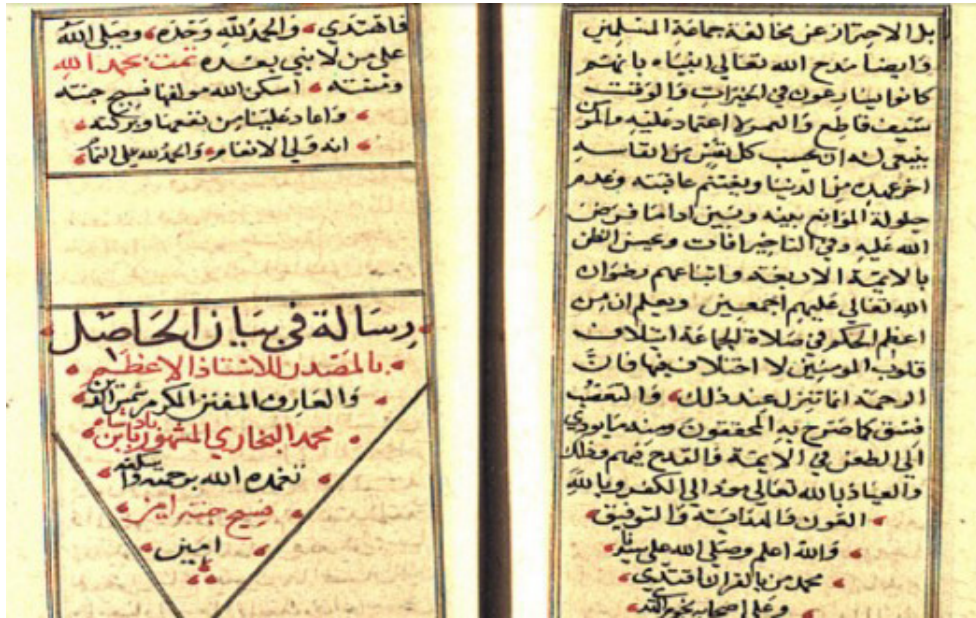 بل الاحتراز عن مخالفة جماعة المسلمين
وايضا مدح الله تعالى انبياه بانهم
كانوا يسارعون في الخيرات والوقت
سيف قاطع والعمر لا اعتماد عليه والموت
ينبغي له ان يحسب كل نفس من انفاسه
اخر عهده من الدنيا ويغتنم عافيته وعدم
حيلولة الموانع بينه وبين اداء ما فرض
الله عليه وفي التاخير افات ويحسن الظن
بالايمة الاربعة واتباعهم رضوان
الله تعالى عليهم اجمعين ويعلم ان من
اعظم الحكم في صلاة الجماعة ايتلاف
قلوب المومنين لا اختلافها فان
الرحمة انما تنزل عند ذلك والتعصب
فسق كما صرح به المحققون ومنه ما يودي
الى الطعن في الايمة والقدح فيهم وذلك
والعياذ بالله تعالى يودي الى الكفر وبالله
العون والهداية والتوفيق
والله اعلم وصلى الله على سيدنا
محمد من بالقران اقتدي
وعلى اصحابه نجوم
فاهتدي والحمد لله وحده وصلى الله
على من لا نبي بعده تمت بحمد الله
ومنته اسكن الله مولفها فسيح جنته
واعاد علينا من نفعها وبركته
انه ولي الانعام والحمد لله على التمام
رسالة في بيان الحاصل
بالمصدر للاستاذ الاعظم
والعارف المفنن المكرم شمس الدين
محمد البخاري المشهور بابن بادشاه
تغمده الله برحمته واسكنه
فسيح جنته امين
امين